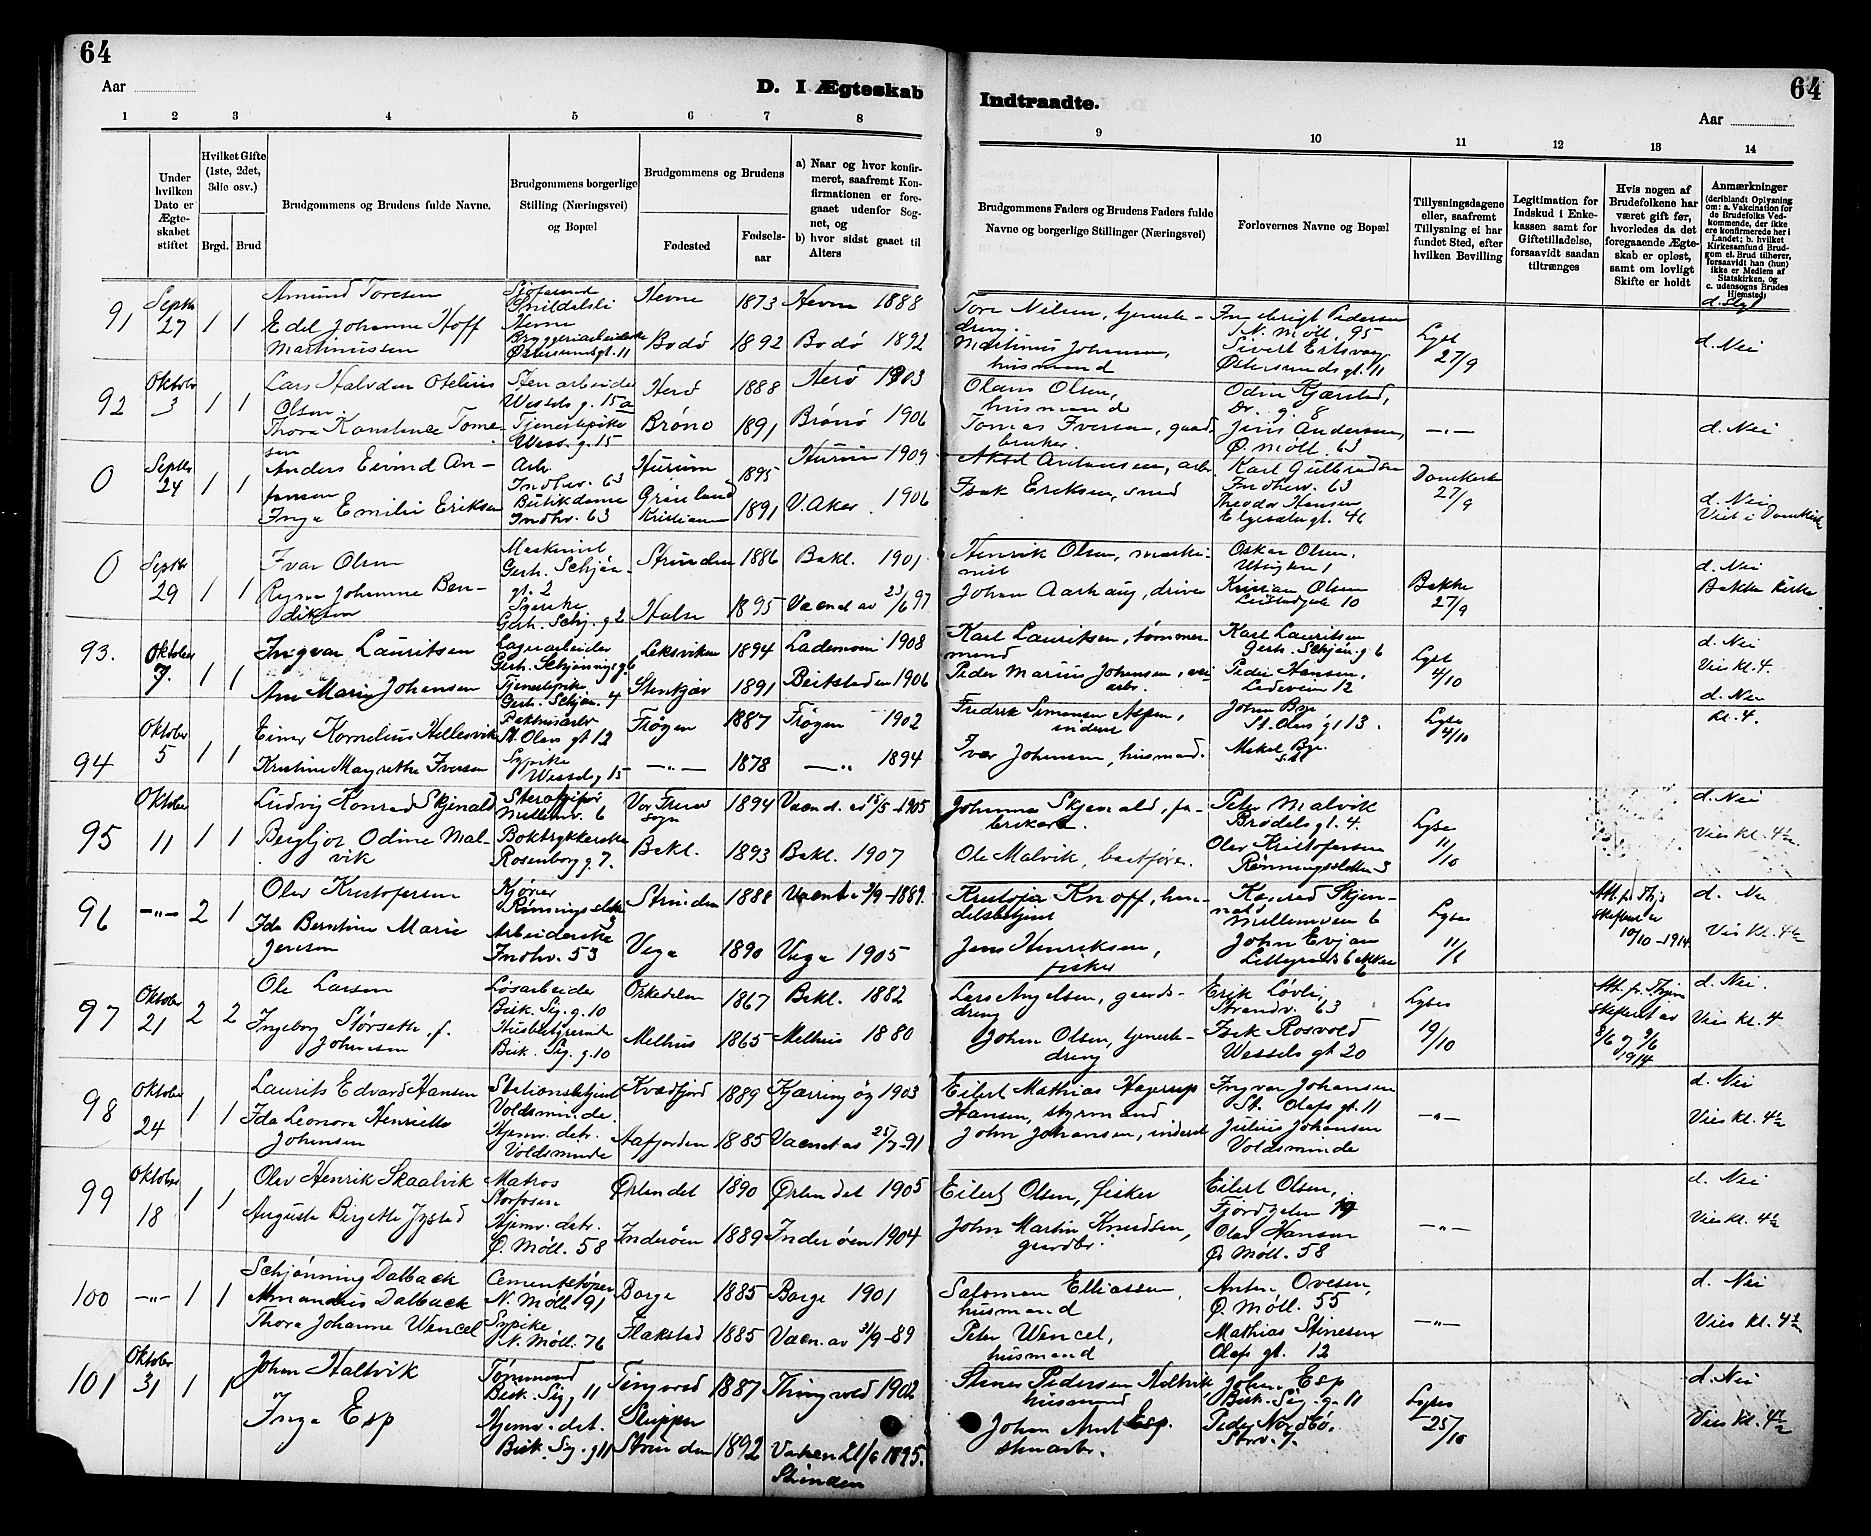 64
64
Aar
D. I Ægteskab
Indtraadte.
Aar
1 2 3 4 5 6 7 8
9 10 11 12 13 14
Under hvilken Dato er Ægteskabet stiftet
Hvilket Gifte (1ste, 2det, 3die osv.)
Brgd. Brud
Brudgommens og Brudens fulde Navne.
Brudgommens borgerlige Stilling (Næringsvei) og Bopæl
Brudgommens og Brudens
Fødested
Fødsels-aar
a) Naar og hvor konfirmeret, saafremt Konfirmationen er foregaaet udenfor Sognet, og
b) hvor sidst gaaet til Alters
Brudgommens Faders og Brudens Faders fulde Navne og borgerlige Stillinger (Næringsvei)
Forlovernes Navne og Bopæl
Tillysningsdagene eller, saafremt Tillysning ei har fundet Sted, efter hvilken Bevilling
Legitimation for Indskud i Enkekassen samt for Giftetilladelse, forsaavidt saadan tiltrænges
Hvis nogen af Brudefolkene har været gift før, hvorledes da det foregaaende Ægteskab er opløst, samt om lovligt Skifte er holdt
Anmærkninger (deriblandt Oplysning om: a. Vakcination for de Brudefolks Vedkommende, der ikke ere konfirmerede her i Landet; b. hvilket Kirkesamfund Brudgom el. Brud tilhører, forsaavidt han (hun) ikke er Medlem af Statskirken, og c. udensogns Brudes Hjemsted)
91 Septbr 27 1 1
Amund Toresen
Hevne 1873 Hevne 1888
Tore Nilsen,
Ingebrigt Pedersen
N. Møll. 95
Edel Johanne Hoff
Martinussen
Østersundsgt. 11
Bodö 1892 Bodö
Martinus Johansen,
husmand
Sivert
Østersundsgt. 11
Lyst 27/9
d. Nei
92 Oktober 3 1 1
Lars Halvdan Otelius
Olsen
Stenarbeider
Wessels g. 15a
Herö 1888 Herö 1903
Olaus Olsen,
husmand
Odin Kjærstad,
Thora Konstance Tomesen
Tjenestepike
Wess. g. 15
Brönö 1891 Brönö 1906
Tomas Iversen, gaardbruker
Jens Andersen,
Ø. Møll. 63
—„—
d. Nei
0 Septbr 24 1 1
Anders Eivind Antonsen
Arb.
Indhv. 63
Hurum 1895 Hurum 1909
Karl Gulbrandsen
Indherv. 63
Inga Emilie Eriksen
Butikdame
Indhv. 63
Grönland
Kristiania 1891 V. Aker 1906
Isak Eriksen, smed
Theodor Hansen
Elgesetergt. 46
Domkirke
27/9
d. Nei
Viet i Domkirke
0 Septbr 29 1 1
Ivar Olsen
Maskinist
Gerh. Schjøn.
gt. 2
Strinden 1886 Bakl. 1901
Henrik Olsen, maskinist
Oskar Olsen,
Johanne Bendiksen
Syerske
Gerh. Schj. g 2
Halse 1895
Johan Aarhaug,
Kristian Olsen
10
Bakke
27/9
d. Nei
Bakke kirke
93. Oktober 7. 1 1
Ingvar Lauritsen
Lagerarbeider
Gerh. Schjønings g. 6
Leksviken 1894 Lademoen 1908
Karl Lauritsen, tømmermand
Karl Lauritsen
Gerh. Schjøn. g 6
Ane Marie Johansen
Tjenestepike
Gerh. Schjøn. 4
Stenkjær 1891 Beitstaden 1906
Peder Marius Johansen,
Peder Hansen,
Ladeveien 12
Lyst
4/10
d. Nei
Vies kl. 4.
94 Oktober 5 1 1
Einar Kornelius Hellesvik
Pakhusarb.
St. Olavs gt. 12
Frøyen 1887 Frøyen 1902
Fredrik Simonsen Aspen,
inderst
Johan Bye
St. Olavs g. 13.
Kristine Margrethe Iversen
Sypike
Wessels g 15
—„— 1878 —„— 1894
Ivar Johansen, husmand.
Mikal Bye
Lyse
4/10
d. Nei
kl. 4.
95 Oktober 11 1 1
Ludvig Konrad Skjenald
Mellemv. 6
Vor Frue
sogn 1894
Johannes Skjenald, fabrikarb.
Peter Malvik
Brødels gt. 4.
Bergljot Odine Malvik
Boktrykkerske
Rosenborg g. 7.
Bakl. 1893 Bakl. 1907
Ole Malvik, baatfører.
Olav Kristofersen
Rønningsletten 3
Lyse
11/10
d. Nei
Vies kl. 4½.
96 —„— 2 1
Olav Kristofersen
Kjører
Rønningsslette
Strinden 1888
Kristofer Knoff, handelsbetjent
Konrad Skjenald
Mellemveien 6
Ida Berntine Marie
Jensson
Arbeiderske
Indhv. 53
Vega 1890 Vega 1905
Jens Henriksen,
fisker
John Evjan
Lyse
11/
Att. fr.
skifteret av
10/10-1914
d. Nei
Vies kl. 4½
97 Oktober 21 2 2
Ole Larsen
Løsarbeider
Bisk. Sig. g. 10
Orkedalen 1867 Bakl. 1882
Lars Angelsen, gaardsdreng
Erik Løvli,
Strandv. 63
Ingeborg Størsette f.
Johnsen
Husbestyrerinde
Bisk. Sig. g. 10
Melhus 1865 Melhus 1880
Johan Olsen, tjenestedreng
Isak Rosvold
Wessels gt 20
Lyses
19/10
Att. fr.
skifteret av
8/6 og 9/6
1914
d. Nei.
Vies kl. 4
98 Oktober 24 1 1
Laurits Edvard Hansen
Stationsbetjent
Voldsminde.
Kvædfjord 1889 Kjærringøy 1903
Eilert Mathias Hagerup
Hansen, styrmand
Ingvar Johansen
St. Olafs gt. 11
Ida Leonora Henriette
Johansen
Hjemv. datr.
Voldsminde
Aafjorden 1885
John Johansen, inderst
Julius Johansen
Voldsminde
—„—
d. Nei
Vies kl. 4½
99 Oktober 18 1 1
Olav Henrik Skaalvik
Matros
Storfosen
Ørlandet 1890 Ørlandet 1905
Eilert Olsen, fisker
Eilert Olsen,
Fjordgaten 19
Auguste Birgitte Jystad
Hjemv. datr.
Ø. Møll. 58
Inderöen 1889 Inderöen 1904
John Martin Knudsen,
gaardbr.
Olav Hansen
Ø. Møll. 58
—„—
d. Nei
Vies kl. 4½
100 —„— 1 1
Schjønning Dalback
Amandus Dalback
Cementstøper
N. Møll. 91
Borge 1885 Borge 1901
Salomon Elliassen,
husmand
Anton Ovesen,
Ø. Møll. 55
Thora Johanne Wencel
Sypike
N. Møll. 76
Flakstad 1885 Vacn. av 21/9-89
Peter Wencel,
husmand
Mathias Stinesen
Olafs gt. 12
—„—
d. Nei
Vies kl. 4½
101 Oktober 31 1 1
Johan Haltvik
Tømmermand
Bisk. Sig. 11
Tingvold 1887 Thingvold 1902
Pedersen Haltvik
husmand
Johan Esp
Bisk. Sig. g. 11
Inga Esp
Hjemv. dat.
Bisk. Sig. g 11
Sluppen
Strinden 1892 21/6 1895.
Strinden
Johan Arnt Esp.
stenarbr.
Peder Nordbö.
Lyses
25/10
d. Nei
Vies kl. 4½